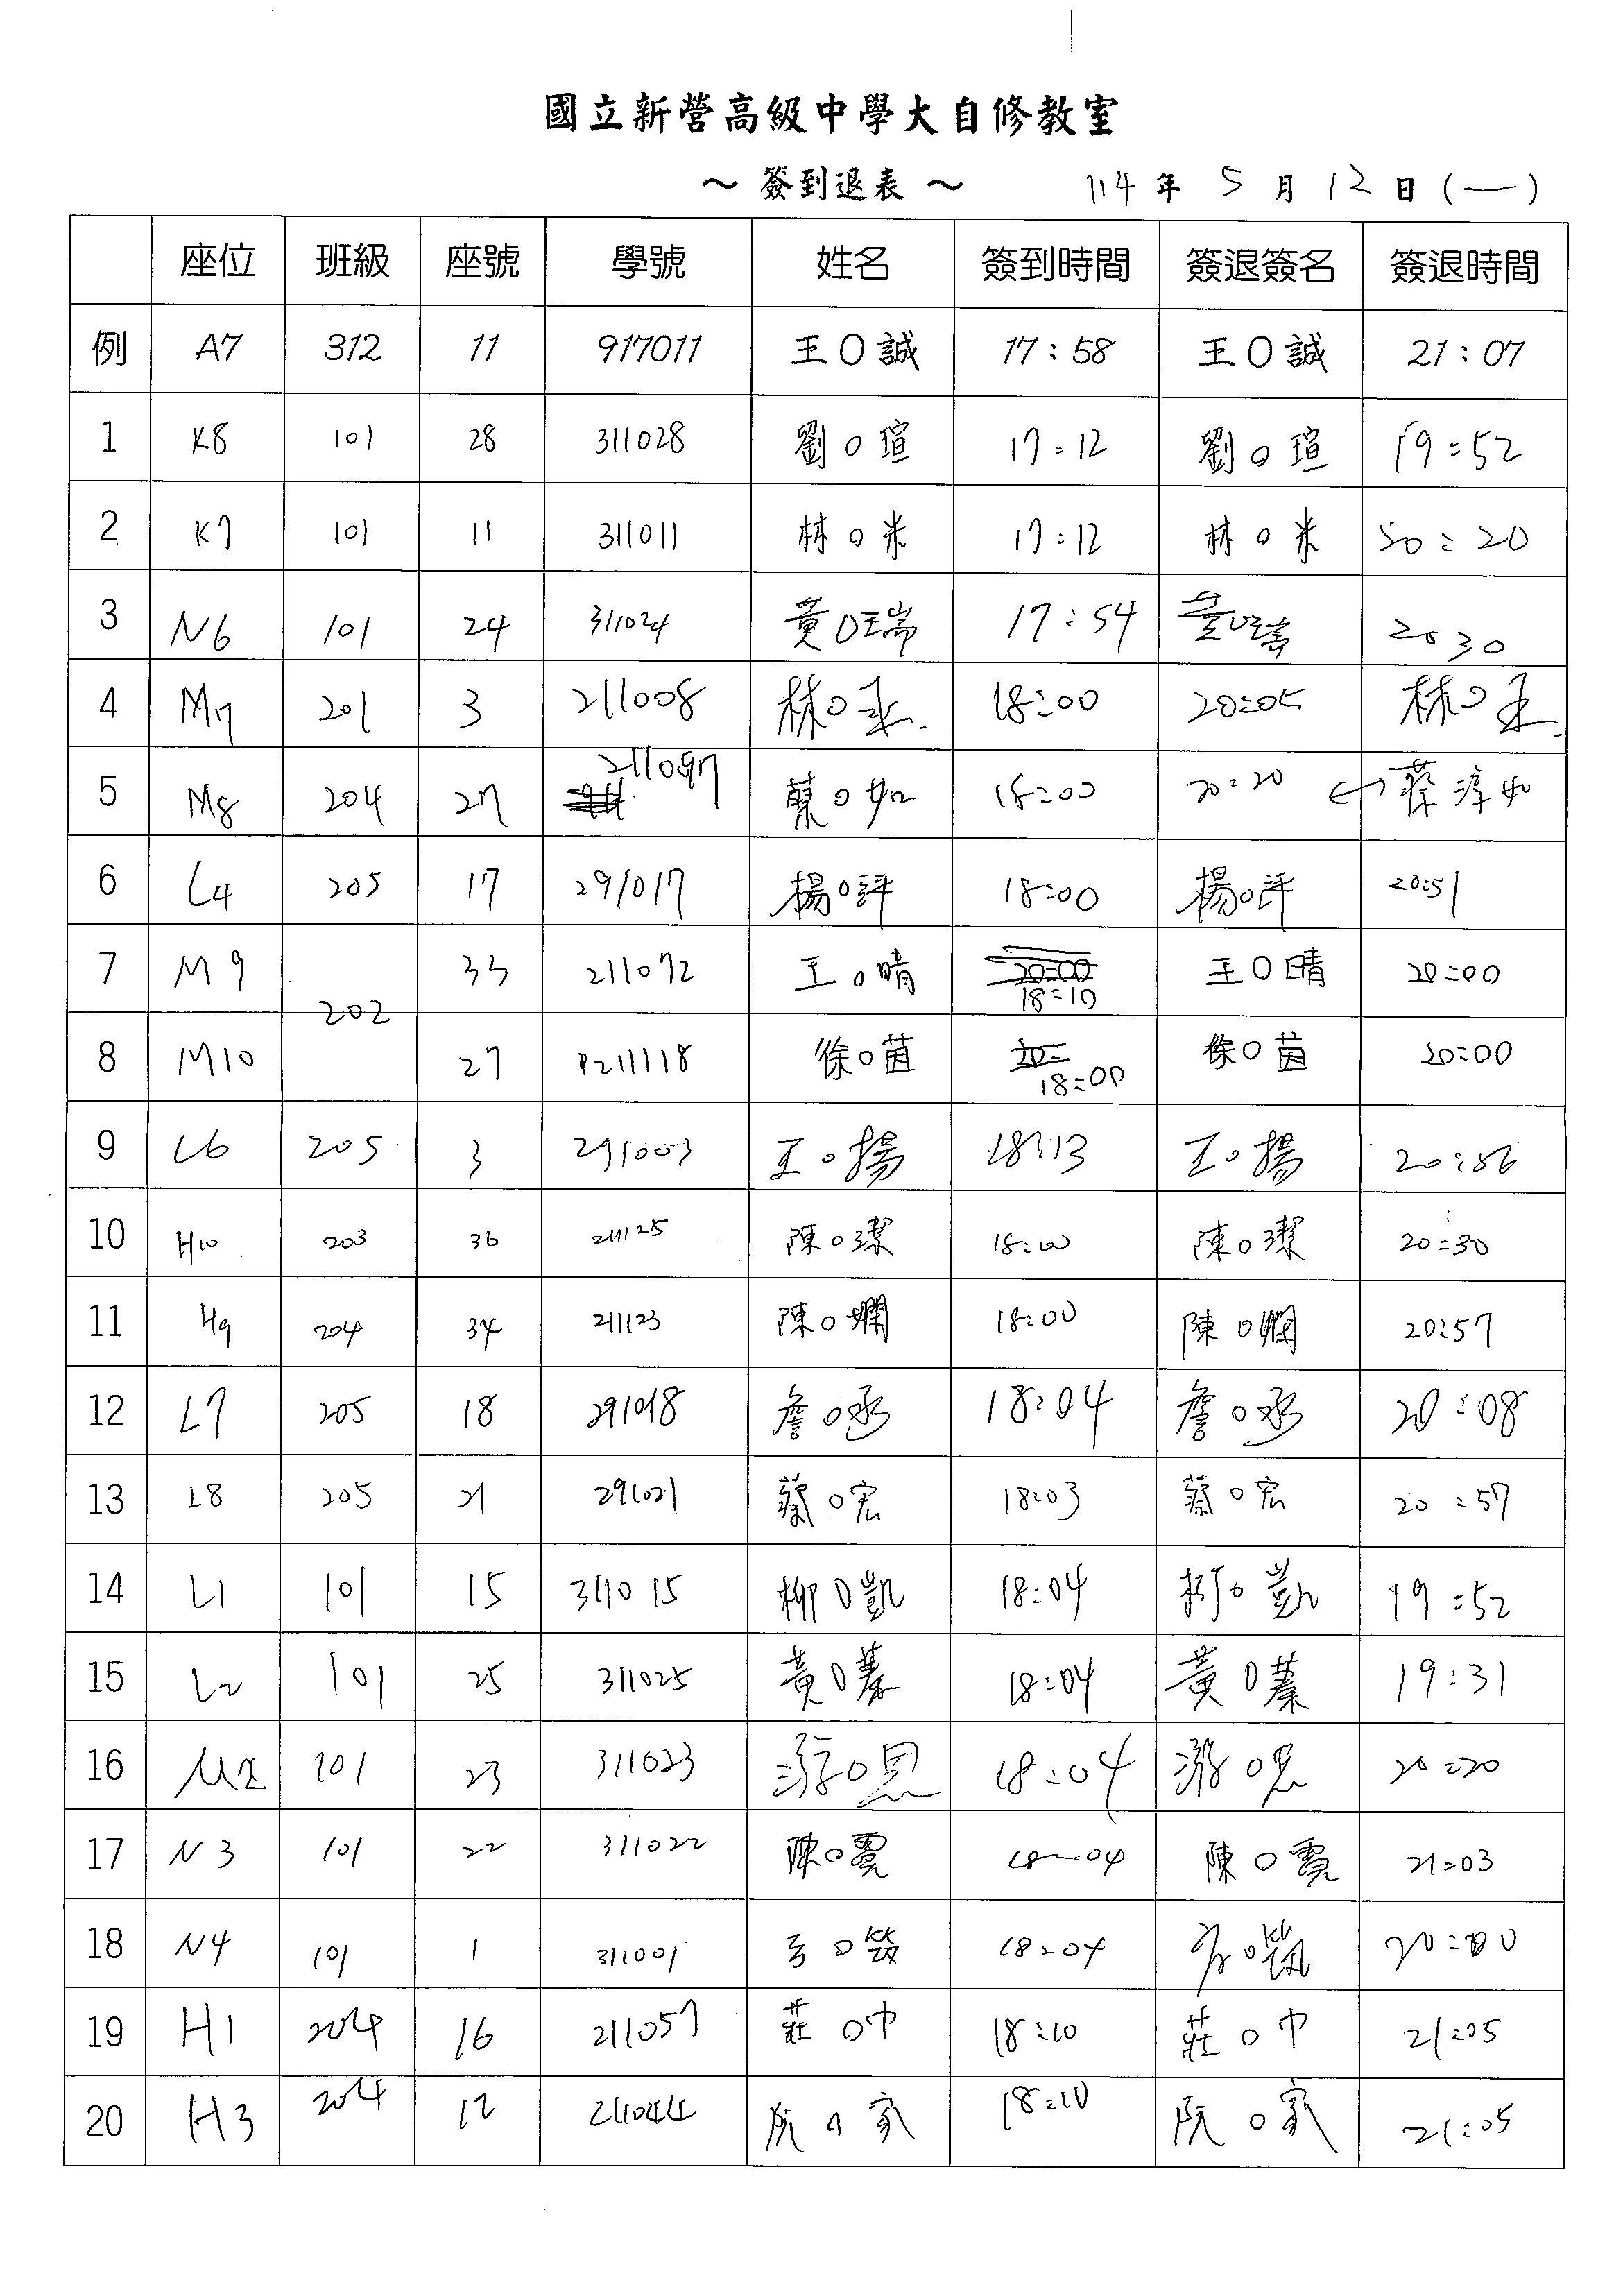 國立新營高級中學大自修教室
～ 簽到退表 ～ 114 年 5 月 12 日 (一)
座位 班級 座號 學號 姓名 簽到時間 簽退簽名 簽退時間
例 A7 312 11 917011 王O誠 17:58 王O誠 21:07
1 K8 101 28 311028 劉O瑄 17:12 劉O瑄 19:52
2 K7 101 11 311011 林O米 17:12 林O米 20:20
3 N6 101 24 311024 黃O瑞 17:54 黃O瑞 20 30
4 M7 201 3 211008 林O 18:00 20:05 林O
5 M8 204 27 211097 蔡O如 18:00 20:20 蔡淳如
6 L4 205 17 291017 楊O評 18:00 楊O評 20:51
7 M9 33 211072 王O晴 20:00 18:10 王O晴 20:00
202
8 M10 27 211118 徐O茵 20: 18:00 徐O茵 20:00
9 L6 205 3 291003 王O揚 18:13 王O揚 20:56
10 H10 203 36 211125 陳O潔 18:00 陳O潔 20:30
11 H9 204 34 211123 陳O嫻 18:00 陳O嫻 20:57
12 L7 205 18 291018 詹O丞 18:04 詹O丞 20:08
13 L8 205 21 291021 蔡O宏 18:03 蔡O宏 20:57
14 L1 101 15 311015 柳O凱 18:04 柯O凱 19:52
15 L2 101 25 311025 黃O蓁 18:04 黃O蓁 19:31
16 101 23 311023 游O恩 18:04 游O恩 20:20
17 N3 101 22 311022 陳O霓 18:04 陳O霓 21:03
18 N4 101 1 311001 18:04 20:00
19 H1 204 16 211057 莊O中 18:10 莊O中 21:05
20 H3 204 12 211044 阮O家 18:10 阮O家 21:05